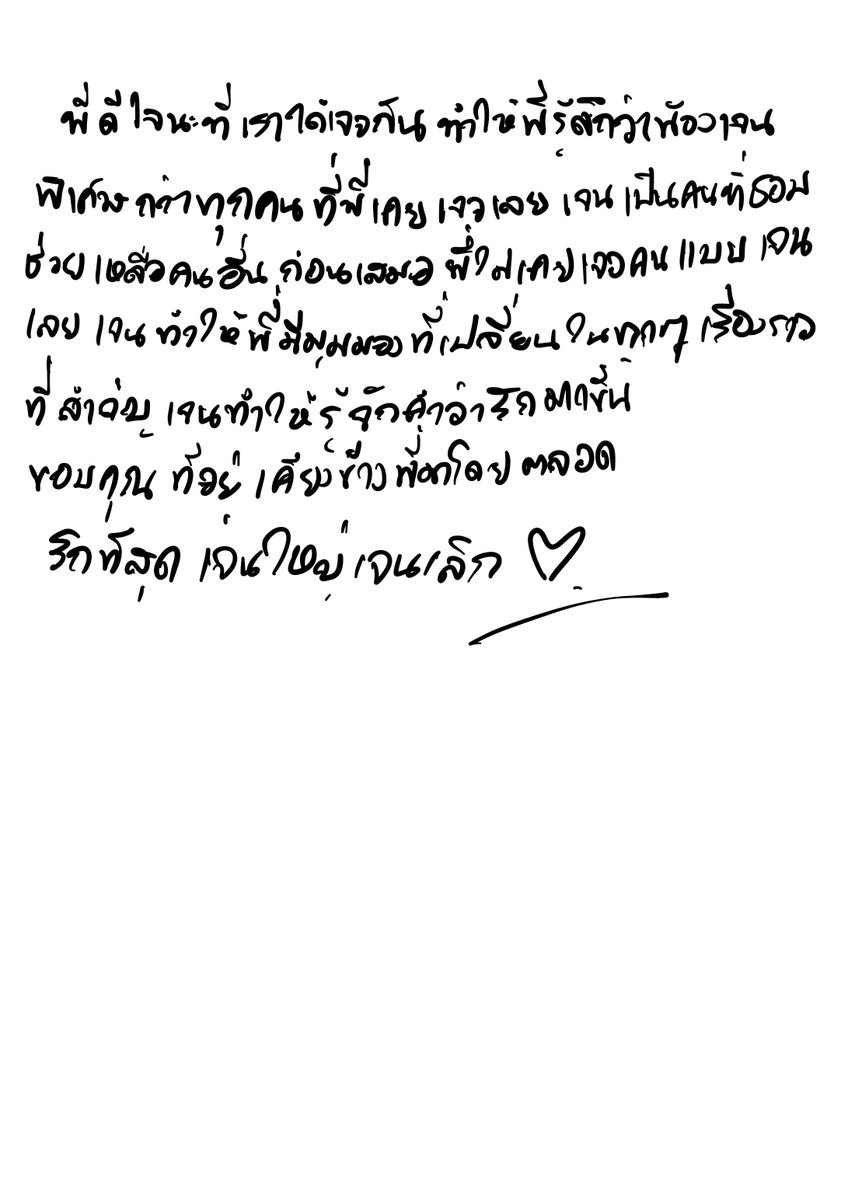 พี่ดีใจนะที่เราได้เจอกัน ทำให้พี่รู้สึกว่าน้องเจน
พิเศษกว่าทุกคนที่พี่เคยเจอเลย เจนเป็นคนที่ชอบ
ช่วยเหลือคนอื่นก่อนเสมอ พี่ไม่เคยเจอคนแบบเจน
เลย เจนทำให้พี่มีมุมมองที่เปลี่ยนในทุกๆ เรื่องราว
ที่สำคัญ เจนทำให้รู้จักคำว่ารักมากขึ้น
ขอบคุณที่อยู่เคียงข้างพี่มาโดยตลอด
รักที่สุด เจ่นใหญ่เจนเล็ก